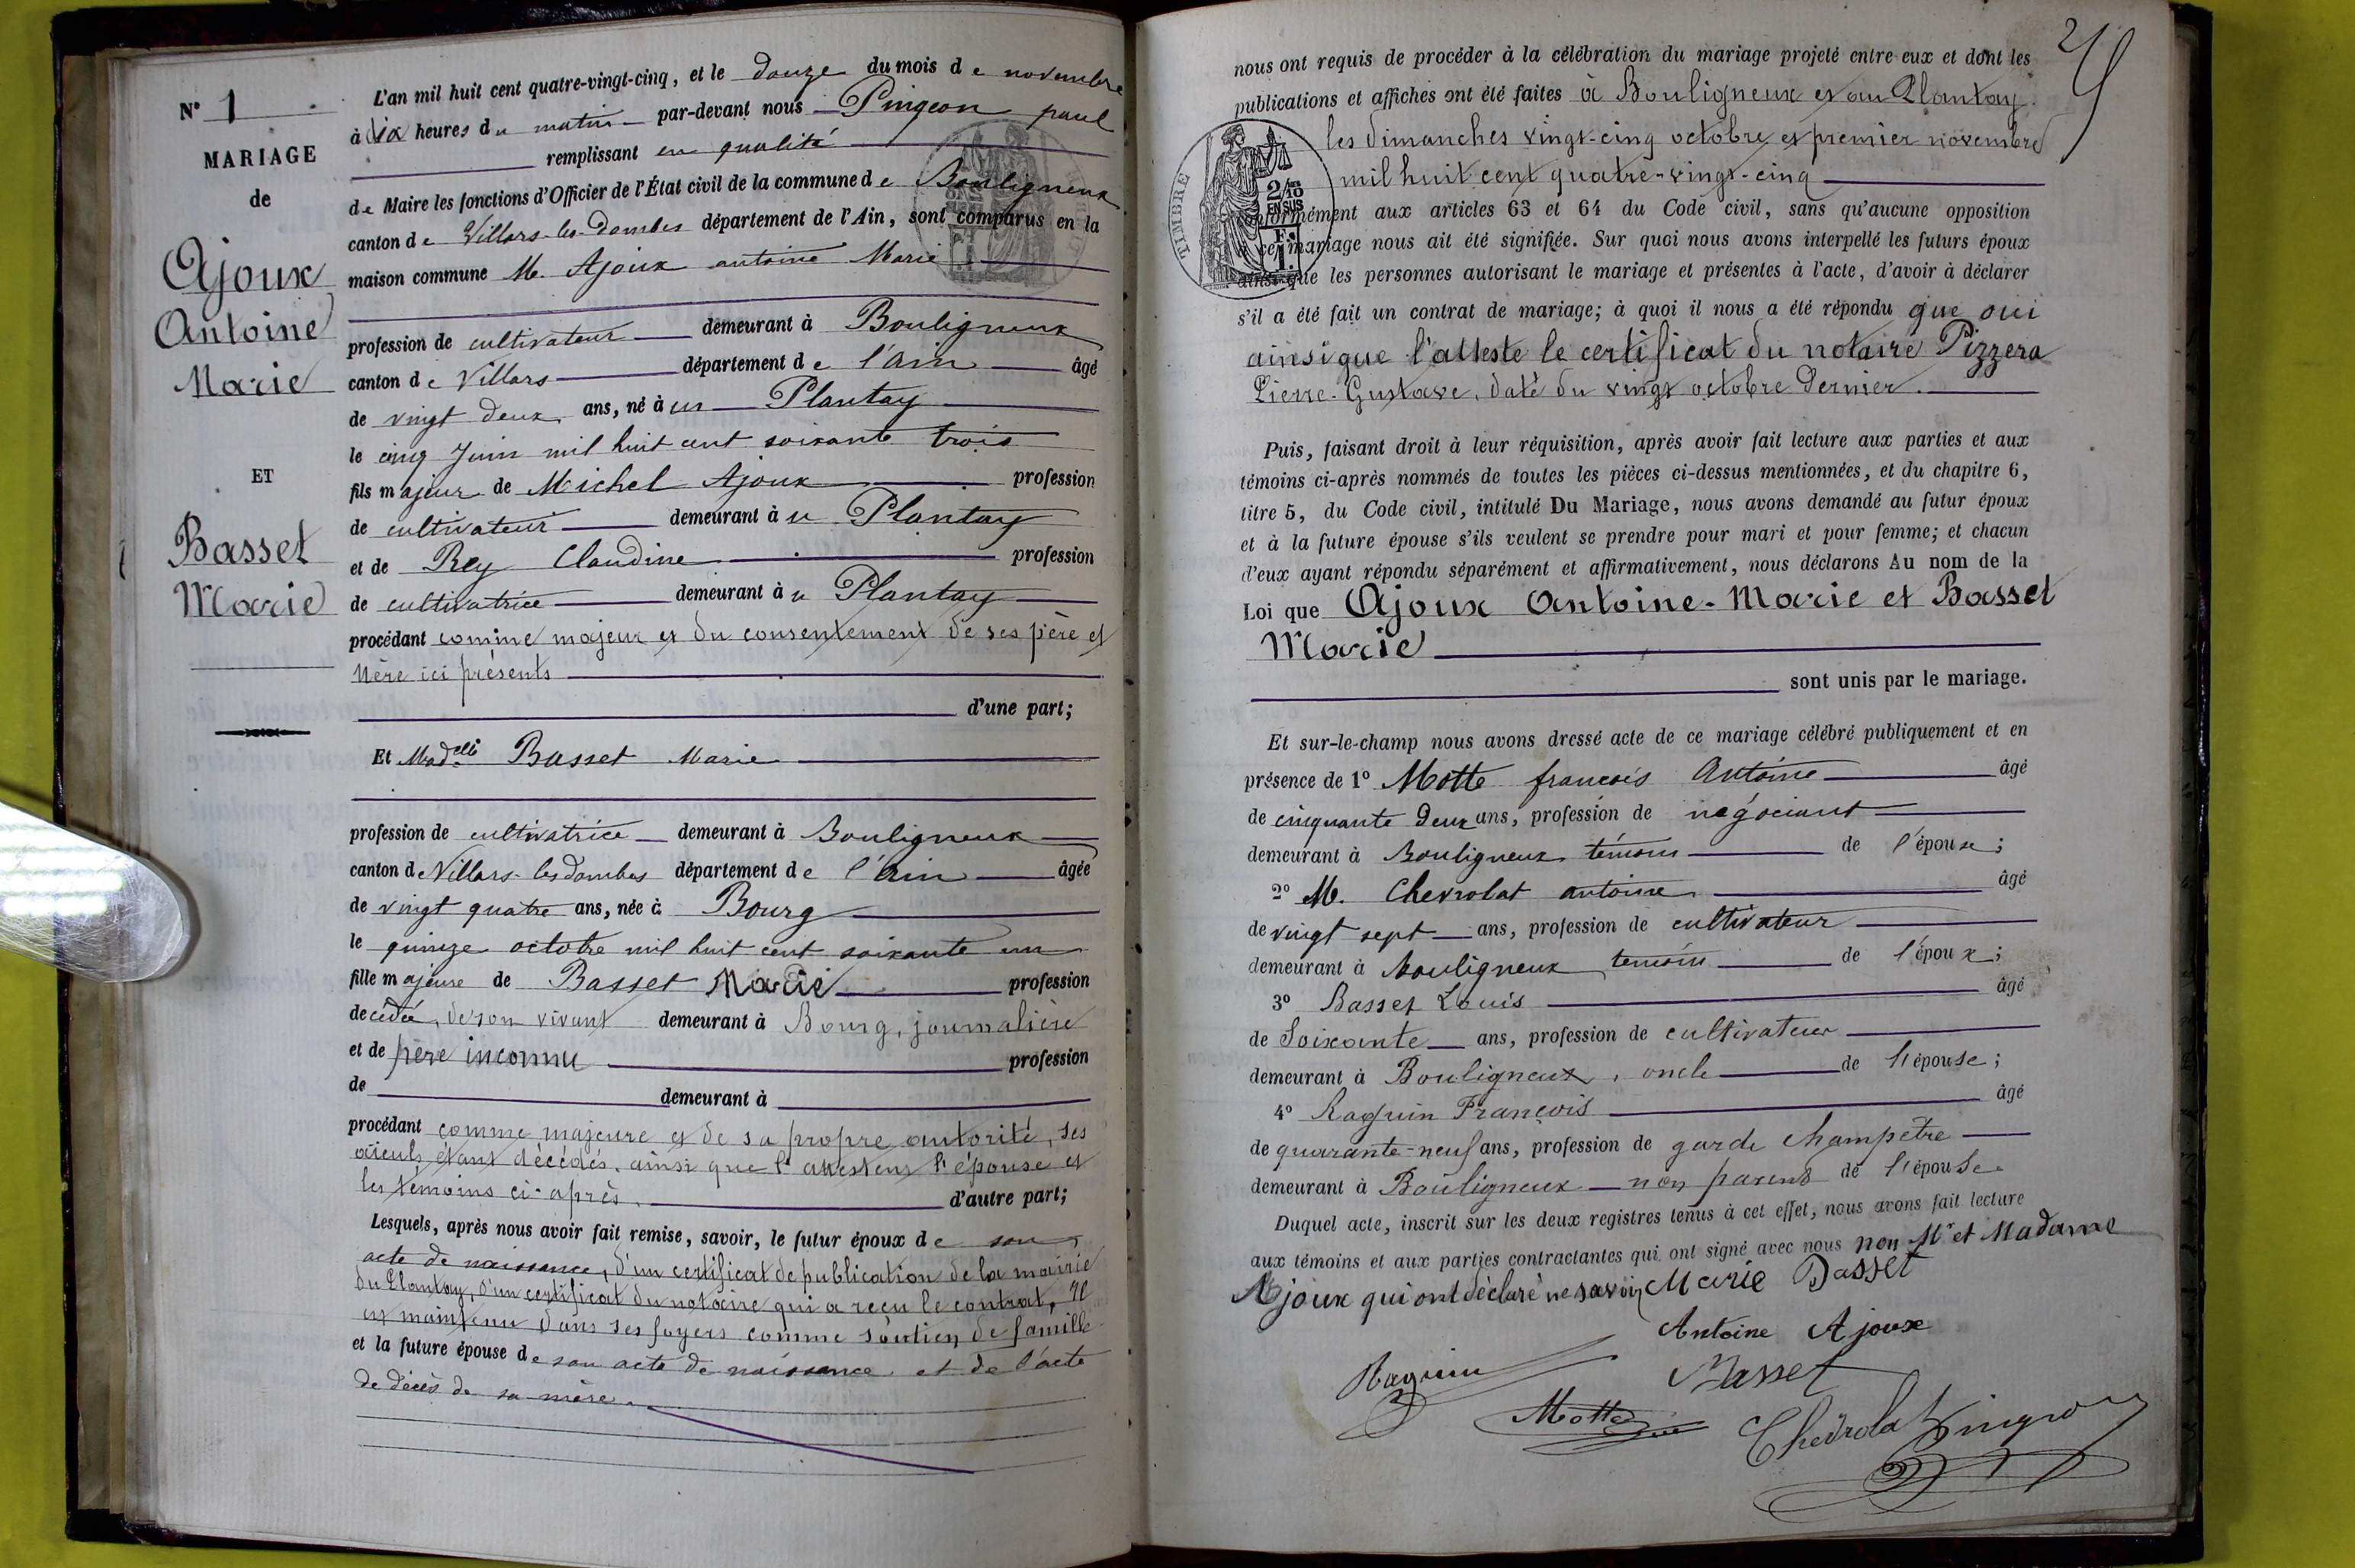 N° 1
MARIAGE
de
Ajoux
Antoine
Marie
ET
Basset
Marie
L'an mil huit cent quatre-vingt-cinq, et le douze du mois de novembre
à dix heures du matin par-devant nous Pingeon paul
remplissant en qualité
de Maire les fonctions d'Officier de l'État civil de la commune de Bouligneux
canton de Villars-les-Dombes département de l'Ain, sont comparus en la
maison commune M. Ajoux antoine Marie
profession de cultivateur demeurant à Bouligneux
canton de Villars département de l'Ain âgé
de vingt deux ans, né à au Plantay
le cinq Juin mil huit cent soixante trois
fils majeur de Michel Ajoux profession
de cultivateur demeurant à u Plantay
et de Rey Claudine profession
de cultivatrice demeurant à u Plantay
procédant comme majeur et du consentement de ses père et
Mère ici présents
d'une part;
Et Madelle Basset Marie
profession de cultivatrice demeurant à Bouligneux
canton de Villars-les dombes département de l'Ain âgée
de vingt quatre ans, née à Bourg
le quinze octobre mil huit cent soixante un
fille majeure de Basset Marie profession
decédée, de son vivant demeurant à Bourg, journalière
et de père inconnu profession
de demeurant à
procédant comme majeure et de sa propre autorité, ses
aïeuls étant décédés, ainsi que l'attestent l'épouse et
les témoins ci-après. d'autre part;
Lesquels, après nous avoir fait remise, savoir, le futur époux de son
acte de naissance, d'un certificat de publication de la mairie
du Plantay, d'un certificat du notaire qui a reçu le contrat, Il
est maintenu dans ses foyers comme soutien de famille
et la future épouse de son acte de naissance et de l'acte
de décès de sa mère.
nous ont requis de procéder à la célébration du mariage projeté entre eux et dont les
publications et affiches ont été faites à Bouligneux et au Plantay
les dimanches vingt-cinq octobre et premier novembre
mil huit cent quatre-vingt-cinq
TIMBRE
2/10
EN SUS
conformément aux articles 63 et 64 du Code civil, sans qu'aucune opposition
à ce mariage nous ait été signifiée. Sur quoi nous avons interpellé les futurs époux
ainsi que les personnes autorisant le mariage et présentes à l'acte, d'avoir à déclarer
s'il a été fait un contrat de mariage; à quoi il nous a été répondu que oui
ainsi que l'atteste le certificat du notaire Pizzera
Pierre-Gustave, daté du vingt octobre dernier.
Puis, faisant droit à leur réquisition, après avoir fait lecture aux parties et aux
témoins ci-après nommés de toutes les pièces ci-dessus mentionnées, et du chapitre 6,
titre 5, du Code civil, intitulé Du Mariage, nous avons demandé au futur époux
et à la future épouse s'ils veulent se prendre pour mari et pour femme; et chacun
d'eux ayant répondu séparément et affirmativement, nous déclarons Au nom de la
Loi que Ajoux Antoine-Marie et Basset
Marie
sont unis par le mariage.
Et sur-le-champ nous avons dressé acte de ce mariage célébré publiquement et en
présence de 1° Motte françois Antoine âgé
de cinquante deux ans, profession de négociant
demeurant à Bouligneux témoin de l'épouse;
2° M. Chevrolat antoine âgé
de vingt sept ans, profession de cultivateur
demeurant à Bouligneux temoin de l'époux;
3° Basset Louis âgé
de Soixante ans, profession de cultivateur
demeurant à Bouligneux, oncle de l'épouse;
4° Raguin François âgé
de quarante-neuf ans, profession de garde champêtre
demeurant à Bouligneux non parent de l'épouse
Duquel acte, inscrit sur les deux registres tenus à cet effet, nous avons fait lecture
aux témoins et aux parties contractantes qui ont signé avec nous non Mr et Madame
Ajoux qui ont déclaré ne savoir Marie Basset
Antoine Ajoux
Raguin Basset
Motte Chevrolat Pingeon